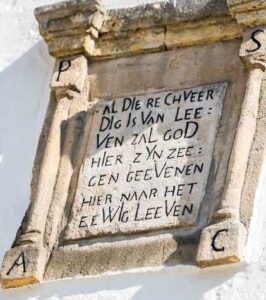 P S
AL DIE RECHVEER
DIG IS VAN LEE:
VEN ZAL GOD
HIER ZYN ZEE:
GEN GEEVENEN
HIER NAAR HET
EEWIG LEEVEN
A C